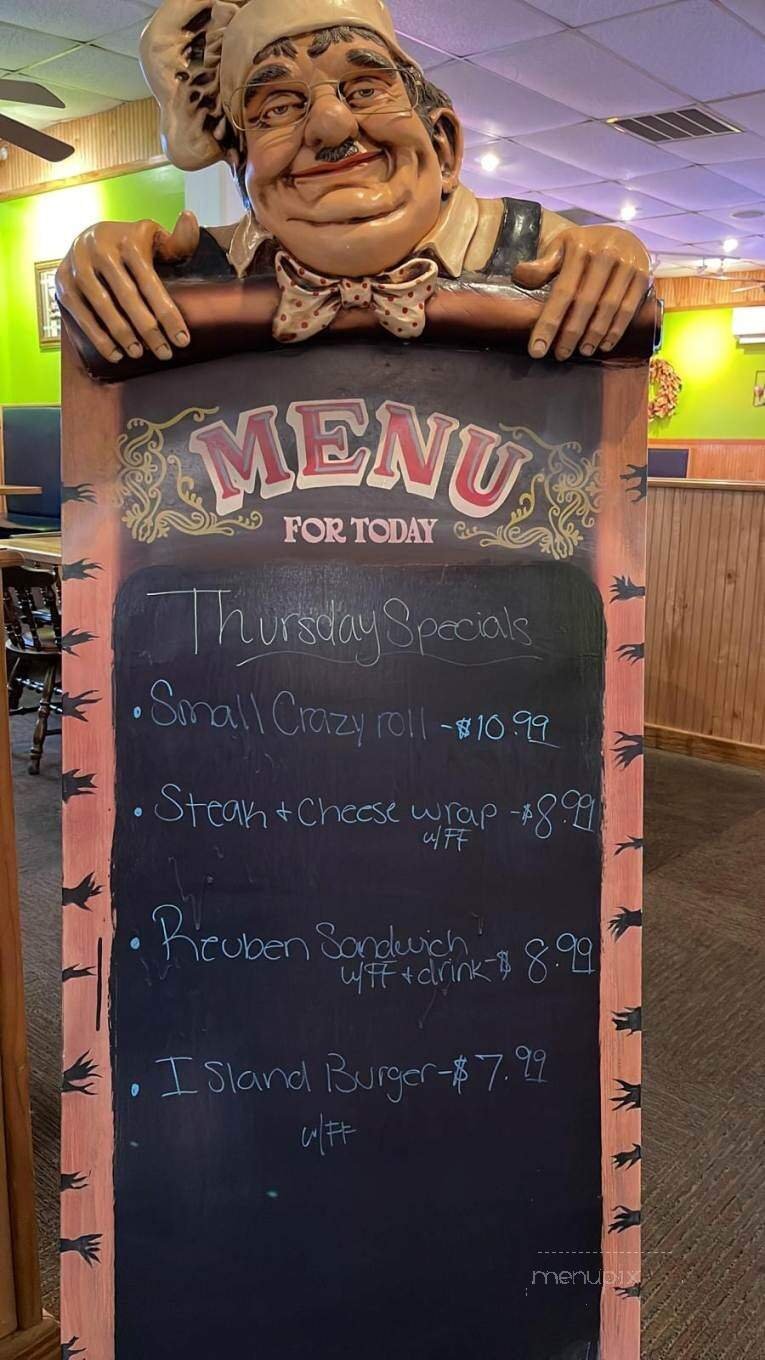 MENU
FOR TODAY
Thursday Specials
• Small Crazy roll - $10.99
• Steak + Cheese wrap - $8.99
w/FF
• Reuben Sandwich
w/FF + drink - $8.99
• Island Burger - $7.99
w/FF
menupix